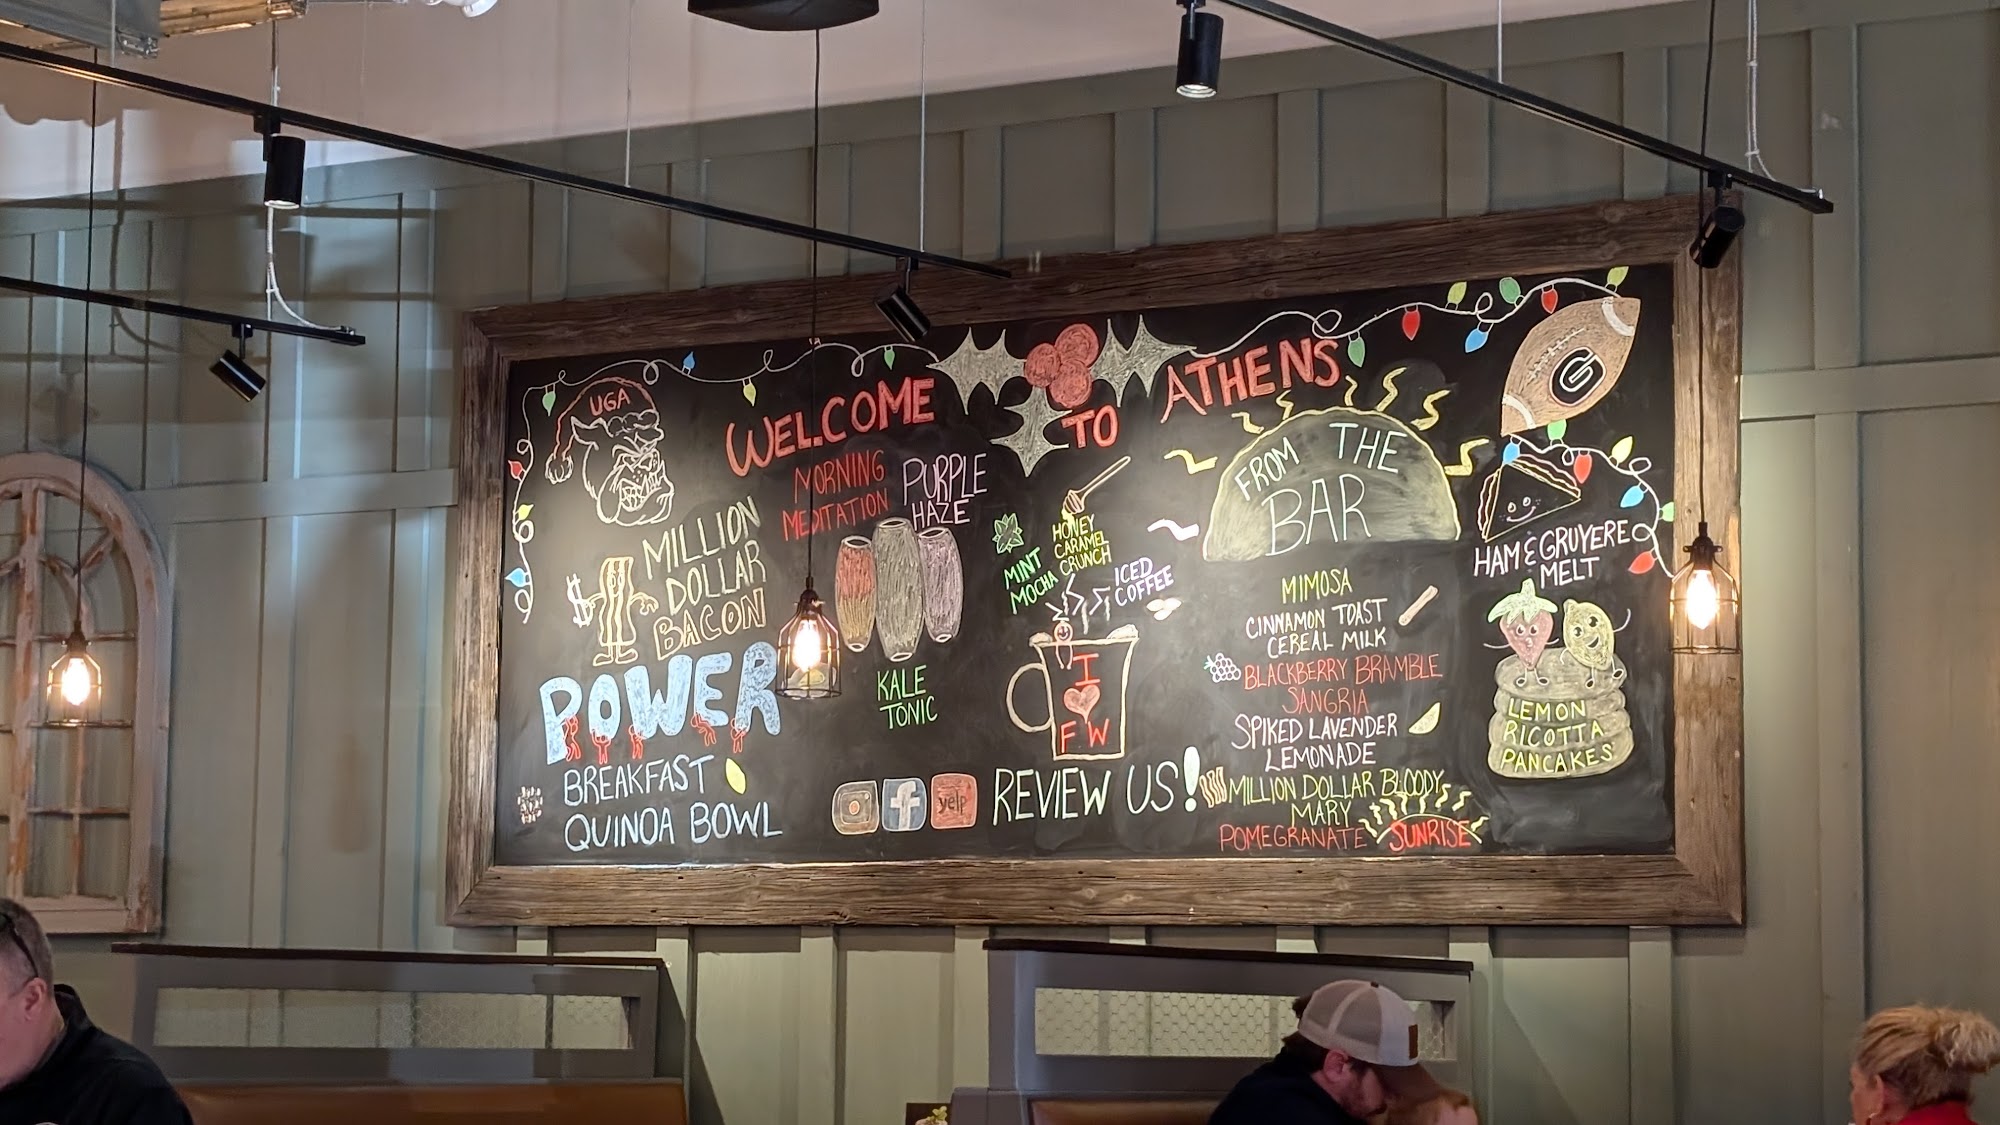 WELCOME TO ATHENS
UGA
MILLION
DOLLAR
BACON
POWER
BREAKFAST
QUINOA BOWL
MORNING
MEDITATION
PURPLE
HAZE
KALE
TONIC
MINT
MOCHA
HONEY
CARAMEL
CRUNCH
ICED
COFFEE
I
FW
yelp
REVIEW US!
FROM THE
BAR
MIMOSA
CINNAMON TOAST
CEREAL MILK
BLACKBERRY BRAMBLE
SANGRIA
SPIKED LAVENDER
LEMONADE
MILLION DOLLAR BLOODY
MARY
POMEGRANATE SUNRISE
G
HAM & GRUYERE
MELT
LEMON
RICOTTA
PANCAKES